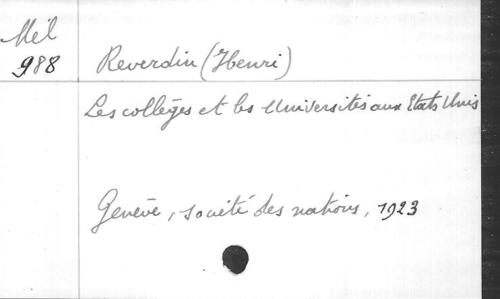 Mél
988
Reverdin (Henri)
Les collèges et les Universités aux Etats Unis
Genève, société des nations, 1923